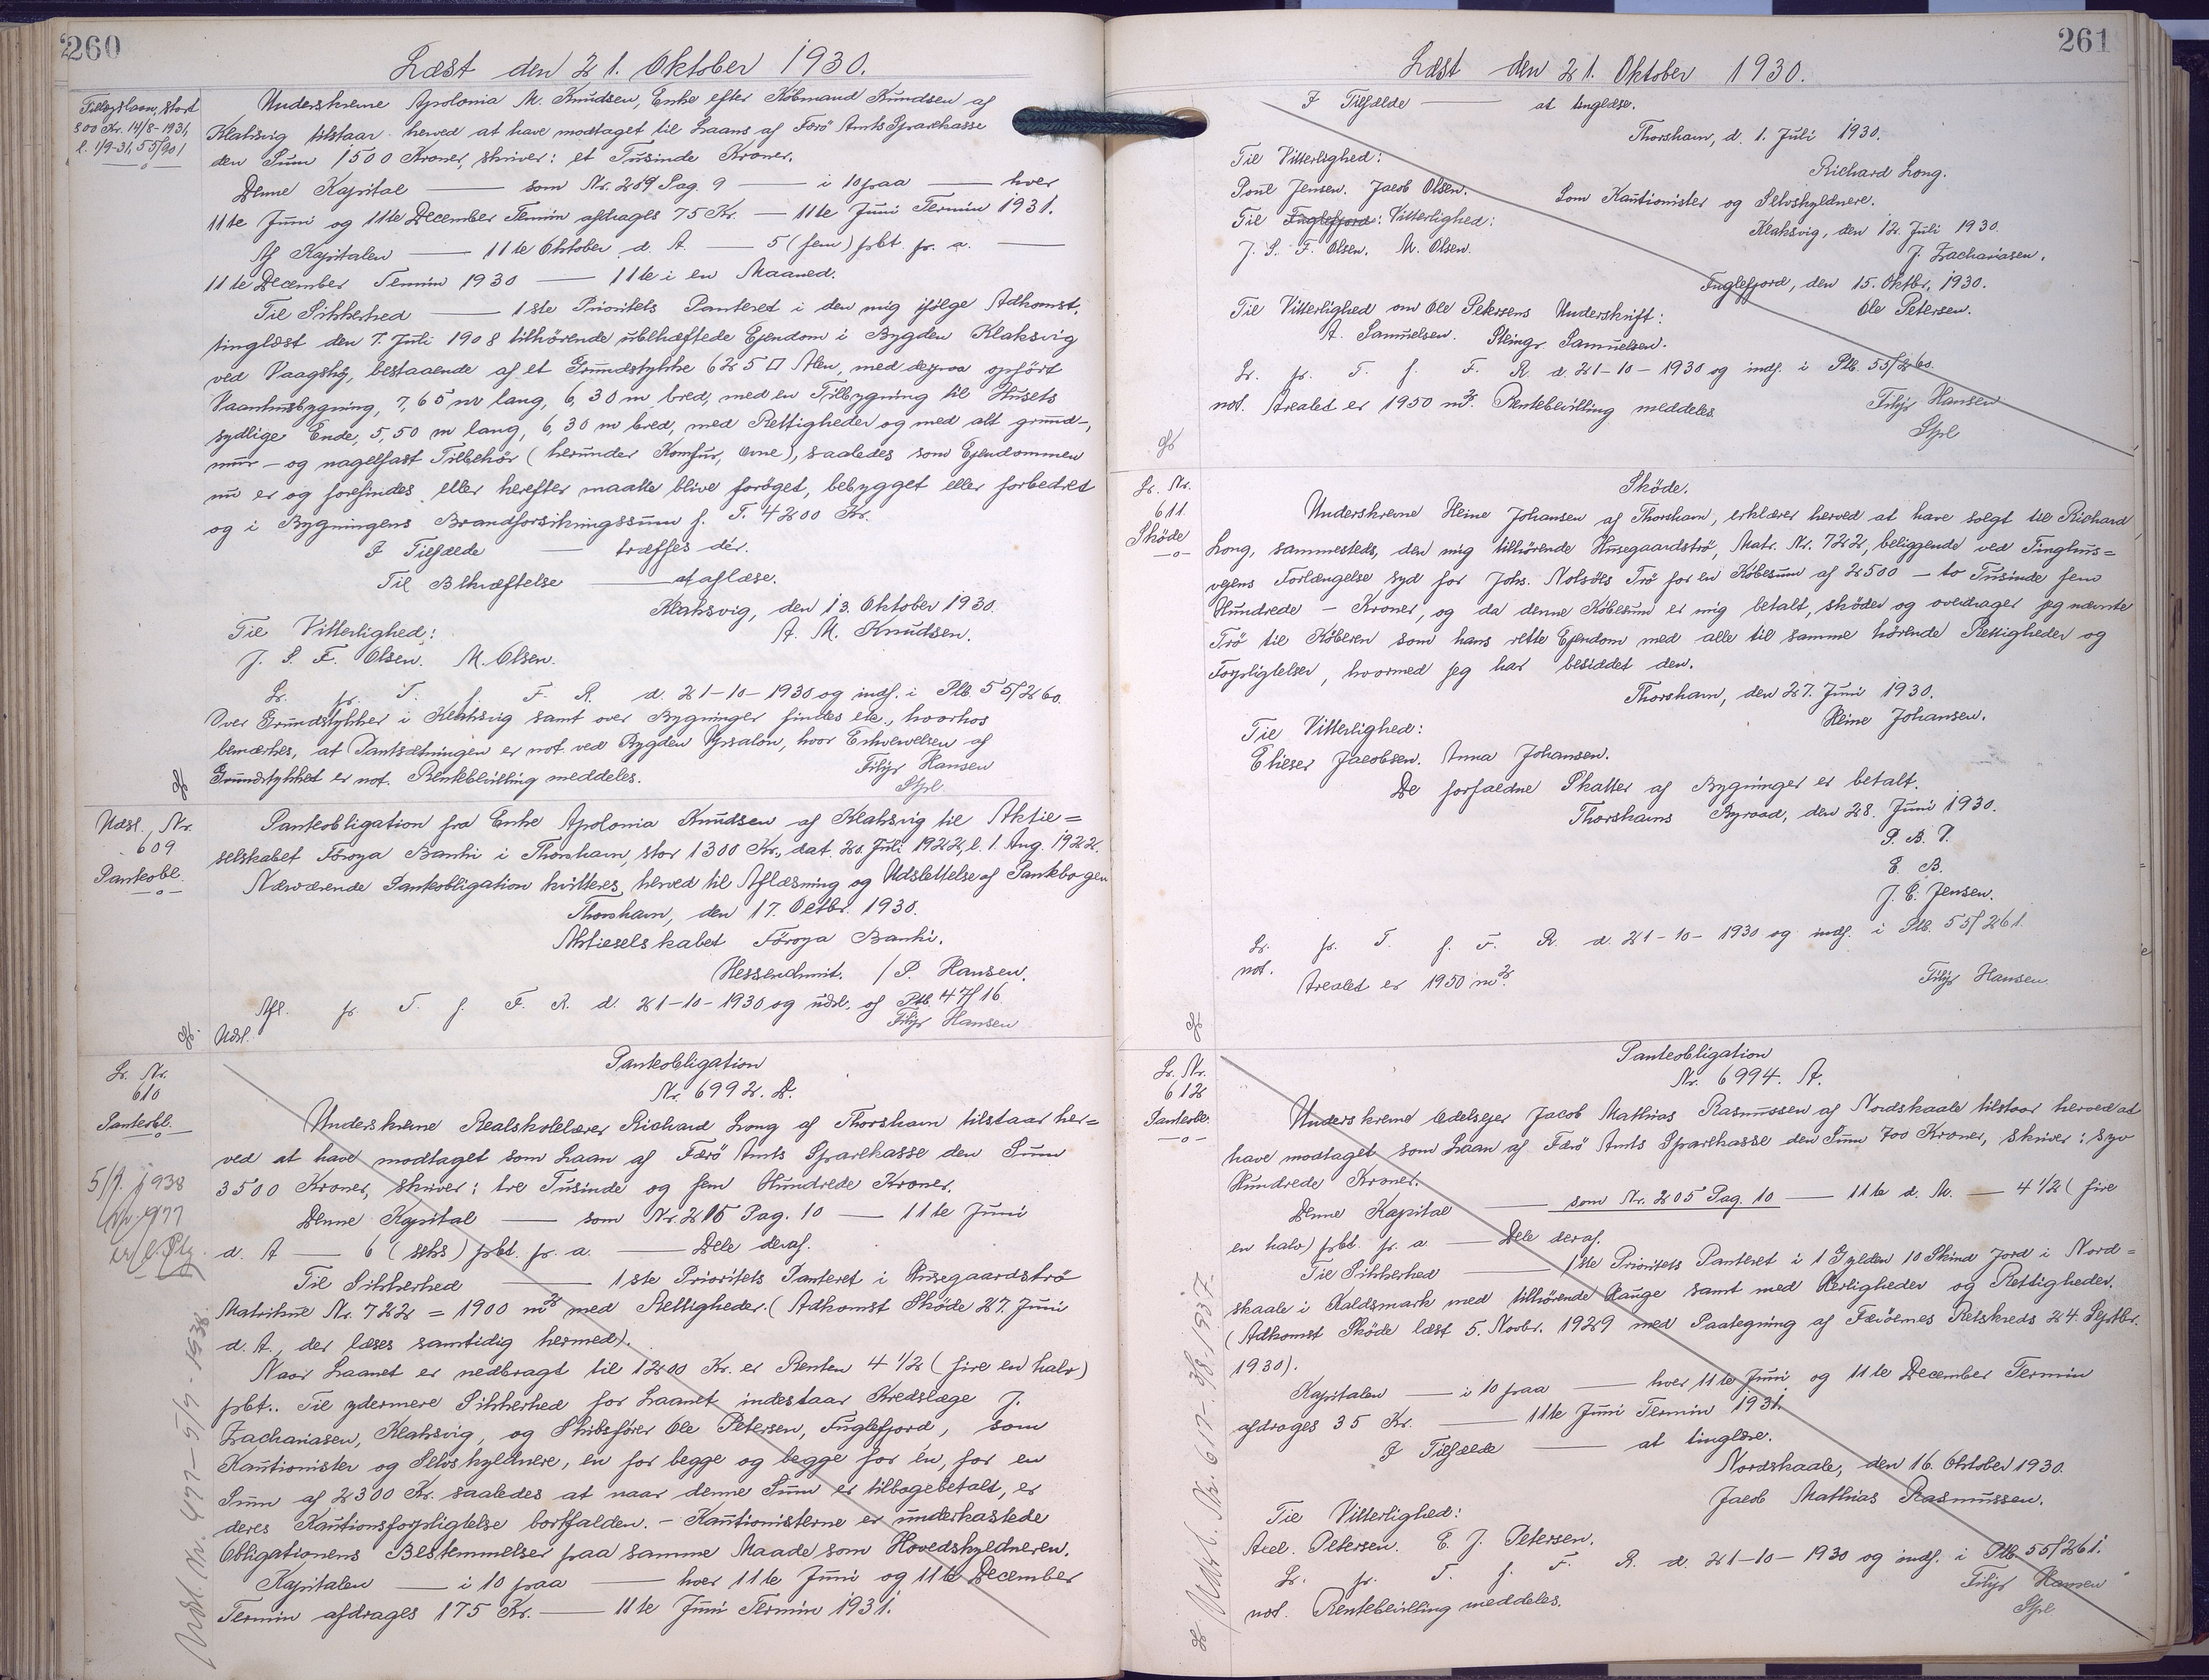 260
Læst den 21. Oktober 1930.
Tillægslaan, stort
500 Kr. 14/8-1931,
l. 1/9-31, 55/901
Underskrevne Apolonia M. Knudsen, Enke efter Købmand Knudsen af
Klaksvig tilstaar herved at have modtaget til Laans af Færö Amts Sparekasse
den Sum 1500 Kroner, skriver: et Tusinde Kroner.
Denne Kapital — som Nr. 209 Pag. 9 — i 10 paa — hver
11te Juni og 11te December Termin afdrages 75 Kr. — 11te Juni Termin 1931.
Af Kapitalen — 11te Oktober d. A. — 5 (fem) pbt. pr. a. —
11te December Termin 1930 — 11te i en Maaned.
Til Sikkerhed — 1ste Prioritets Panteret i den mig ifölge Adkomst,
tinglæst den 7. Juli 1908 tilhörende ubehæftede Ejendom i Bygden Klaksvig
ved Vaagsbÿ, bestaaende af et Grundstykke 625 □ Alen, med derpaa opfört
Vaanhusbygning, 7,65 m lang, 6,30 m bred, med en Tilbygning til Husets
sydlige Ende, 5,50 m lang, 6,30 m bred, med Rettigheder og med alt grund-,
mur- og nagelfast Tilbehör (herunder Komfur, Ovne), saaledes som Ejendommen
nu er og forefindes eller herefter maatte blive foröget, bebygget eller forbedret
og i Bygningens Brandforsikringssum f. T. 4200 Kr.
I Tilfælde — træffes dér.
Til Bekræftelse — at aflæse.
Klaksvig, den 13. Oktober 1930.
Til Vitterlighed: A. M. Knudsen.
J. S. F. Olsen. M. Olsen.
Lr. pr. T. f. F. R. d. 21-10-1930 og indf. i Ptb. 55/260.
Over Grundstykker i Klaksvig samt over Bygninger findes ele., hvorhos
bemærkes, at Pantsætningen er not. ved Bygden Ypsalon, hvor Erhvervelsen af
Grundstykket er not. Rentebevilling meddeles.
Filip Hansen
Stpl
Udsl. Nr.
609
Panteobl.
Panteobligation fra Enke Apolonia Knudsen af Klaksvig til Aktie=
selskabet Föroya Banki i Thorshavn, stor 1300 Kr., dat. 20. Juli 1922, l. 1. Aug. 1922.
Nærværende Panteobligation kvitteres herved til Aflæsning og Udslettelse af Pantebogen
Thorshavn, den 17. Octbr. 1930.
Aktieselskabet Föroya Banki.
/P. Hansen.
Afl. pr. T. f. F. R. d. 21-10-1930 og udsl. af Ptb. 47/16
Udsl. Filip Hansen
Lr. Nr.
610
Panteobl.
Panteobligation
Nr. 6992. A.
Underskrevne Realskolelærer Richard Long af Thorshavn tilstaar her=
ved at have modtaget som Laan af Færö Amts Sparekasse den Sum
3500 Kroner, skriver: tre Tusinde og fem Hundrede Kroner.
Denne Kapital — som Nr. 215 Pag. 10 — 11te Juni
d. A — 6 (seks) pbt. pr. a. — Dele deraf.
Til Sikkerhed — 1ste Prioritets Panteret i Husegaardströ
Matrikul Nr. 722 = 1900 m² med Rettigheder. (Adkomst Sköde 27. Juni
d. A., der læses samtidig hermed).
Naar Laanet er nedbragt til 1200 Kr. er Renten 4 1/2 (fire en halv)
pbt.. Til ydermere Sikkerhed for Laanet indestaar Kredslæge J.
Zachariasen, Klaksvig, og Skibsförer Ole Petersen, Fuglefjord, som
Kautionister og Selvskyldnere, én for begge og begge for én, for en
Sum af 2300 Kr. saaledes at naar denne Sum er tilbagebetalt, er
deres Kautionsforpligtelse bortfalden. - Kautionisterne er underkastede
Obligationens Bestemmelser paa samme Maade som Hovedskyldneren.
Kapitalen — i 10 paa — hver 11te Juni og 11te December
Termin afdrages 175 Kr. — 11te Juni Termin 1931.
5/9. 1938
Udsl. Nr. 477-5/9-1938.
261
Læst den 21. Oktober 1930.
I Tilfælde — at tinglæse.
Thorshavn, d. 1. Juli 1930.
Til Vitterlighed: Richard Long.
Poul Jensen. Jacob Olsen. Som Kautionister og Selvskyldnere.
Til Fuglefjord: Vitterlighed: Klaksvig, den 12. Juli 1930.
J. S. F. Olsen. M. Olsen. J. Zachariasen.
Fuglefjord, den 15. Oktbr. 1930.
Til Vitterlighed om Ole Petersens Underskrift: Ole Petersen.
A. Samuelsen. Samuelsen.
Lr. pr. T. f. F. R. d. 21-10-1930 og indf. i Ptb. 55/260.
not. Arealet er 1950 m². Rentebevilling meddeles.
Filip Hansen
Stpl
Lr. Nr.
611
Sköde
Sköde.
Underskrevne Heine Johansen af Thorshavn, erklærer herved at have solgt til Richard
Long, sammesteds, den mig tilhörende Husegaardströ, Matr. Nr. 722, beliggende ved Tinghus=
vejens Forlængelse syd for Johs. Nolsöes Trö for en Købesum af 2500 — to Tusinde fem
Hundrede — Kroner, og da denne Købesum er mig betalt, sköder og overdrager jeg nævnte
Trö til Køberen som hans rette Ejendom med alle til samme hörende Rettigheder og
Forpligtelser, hvormed jeg har besiddet den.
Thorshavn, den 27. Juni 1930.
Til Vitterlighed: Heine Johansen.
Elieser Jacobsen. Anna Johansen.
De forfaldne Skatter af Bygninger er betalt.
Thorshavns Byraad, den 28. Juni 1930.
P. B. V.
E. B.
J. E. Jensen.
Lr. pr. T. f. F. R. d. 21-10-1930 og indf. i Ptb. 55/261.
not. Arealet er 1950 m².
Filip Hansen
Lr. Nr.
612
Panteobl.
Panteobligation
Nr. 6994. A.
Underskrevne Odelsejer Jacob Mathias Rasmussen af Nordskaale tilstaar herved at
have modtaget som Laan af Færö Amts Sparekasse den Sum 700 Kroner, skriver: syv
Hundrede Kroner.
Denne Kapital — som Nr. 205 Pag. 10 — 11te d. M. — 4 1/2 (fire
en halv) pbt. pr. a — Dele deraf.
Til Sikkerhed — 1ste Prioritets Panteret i 1 Gylden 10 Skind Jord i Nord=
skaale i Kaldsmark med tilhörende Hauge samt med Herligheder og Rettigheder.
(Adkomst Sköde læst 5. Novbr. 1929 med Paategning af Færöernes Retskreds 24. Septbr.
1930).
Kapitalen — i 10 paa — hver 11te Juni og 11te December Termin
afdrages 35 Kr. — 11te Juni Termin 1931.
I Tilfælde — at tinglæse.
Nordskaale, den 16. Oktober 1930.
Til Vitterlighed: Jacob Mathias Rasmussen.
Axel. Petersen. E. J. Petersen.
Lr. pr. T. f. F. R. d. 21-10-1930 og indf. i Ptb. 55/261.
not. Rentebevilling meddeles.
Filip Hansen
Stpl
Udsl. Nr. 617-